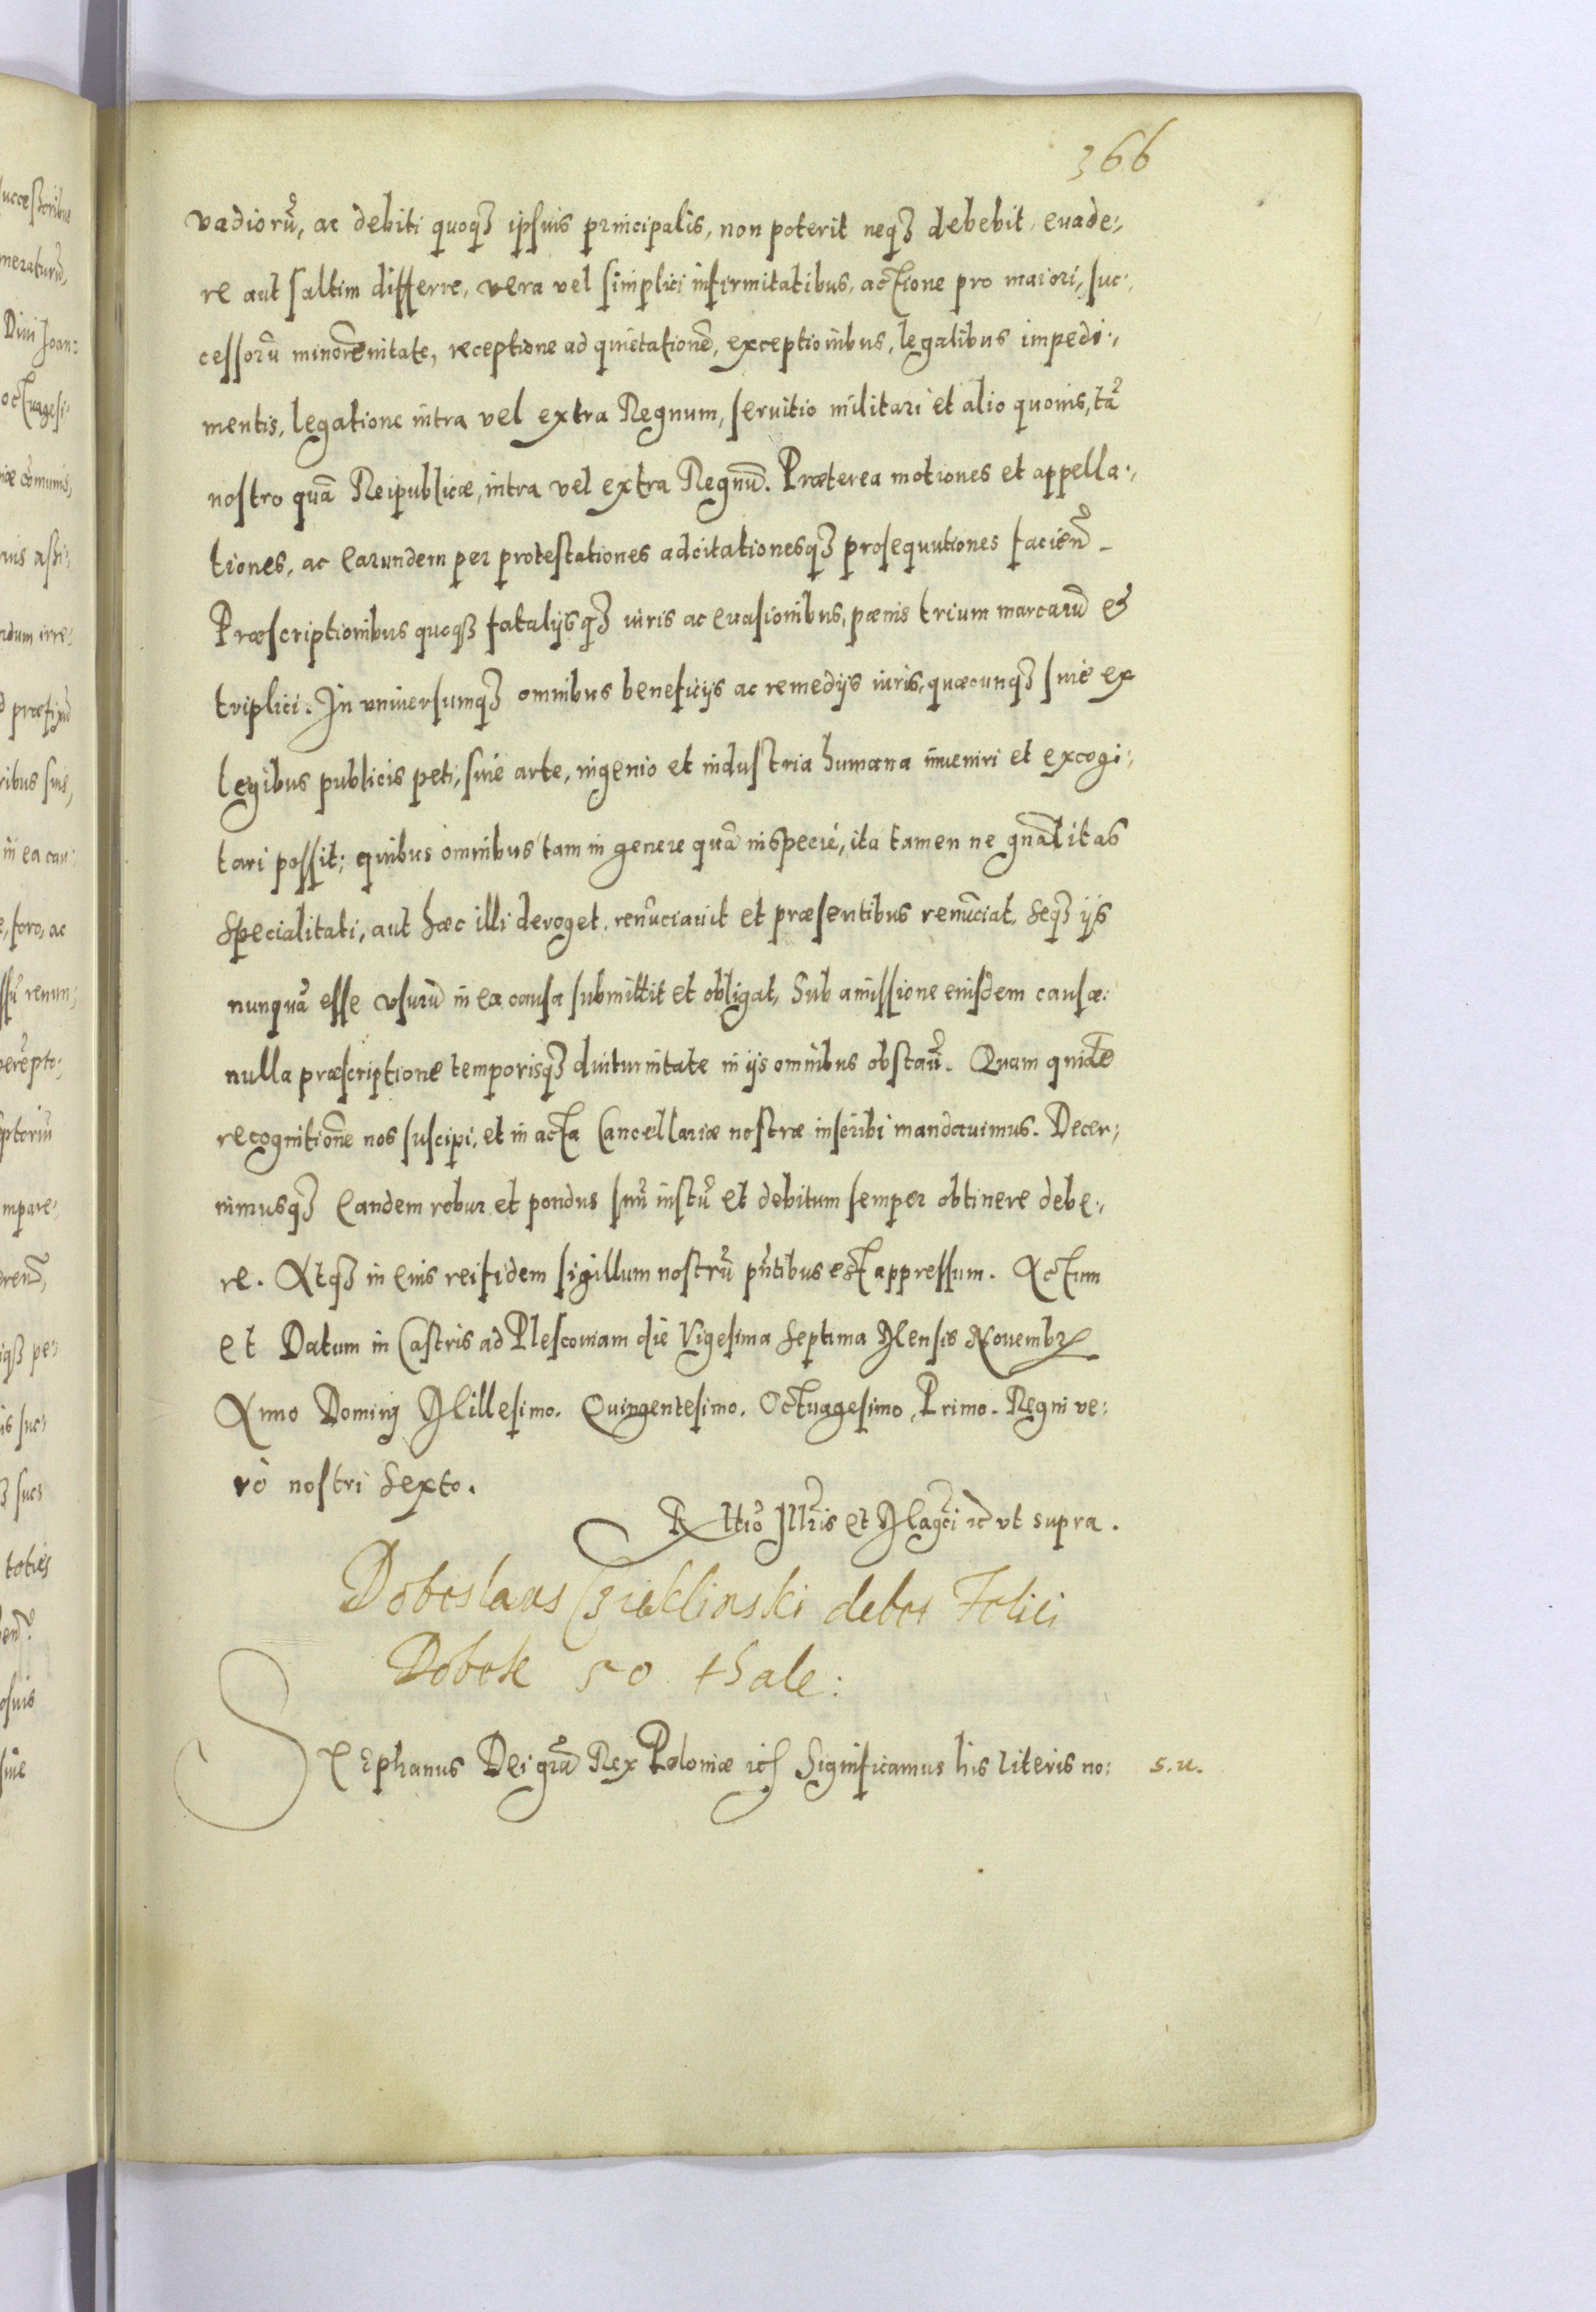 366
vadiorũ, ac debiti quoqʒ ipsius principalis, non poterit neqʒ debebit, euade:,
re aut saltim differre, vera vel simplici infirmitatibus, actione pro maiori, suc:,
cessorũ minorẽnitate, receptione ad quietationẽ, exceptionibus, legalibus impedi:,
mentis, legatione intra vel extra Regnum, seruitio militari et alio quouis, tã
nostro quã Reipublicæ, intra vel extra Regnũ. Præterea motiones et appella:,
tiones, ac earundem per protestationes adcitationesqʒ prosequutiones facieñ.
Præscriptionibus quoqʒ fatalijsqʒ iuris ac euasionibus, pænis trium marcarũ et
triplici. In vniuersumqʒ omnibus beneficijs ac remedijs iuris, quæcunqʒ siue ex
legibus publicis peti, siue arte, ingenio et industria humana inueniri et excogi:,
tari possit; quibus omnibus tam in genere quã in specie, ita tamen ne gñalitas
Specialitati, aut hæc illi deroget, renũciauit et præsentibus renũciat, seqʒ ijs
nunquã esse vsurũ in ea causa submittit et obligat, Sub amissione eiusdem causæ:
nulla præscriptione temporisqʒ diuturnitate in ijs omnibus obstañ. Quam quidẽ
recognitionẽ nos suscipi, et in acta Cancellariæ nostræ inscribi mandauimus. Decer:,
nimusqʒ Eandem robur et pondus suũ iustũ et debitum semper obtinere debe:,
re. Atqʒ in eius rei fidem sigillum nostrũ pñtibus est appressum. Actum
et Datum in Castris ad Plescouiam die Vigesima Septima Mensis Nouembr
Anno Dominj Millesimo. Quingentesimo. Octuagesimo, Primo. Regni ve:
rò nostri Sexto.
Rltiõ Illris et Magci ic vt supra.
Doboslaus Czieklinski debet Felici
Dobek 50 thale:
Stephanus Dei grã Rex Poloniæ ic Significamus his literis no: s. u.